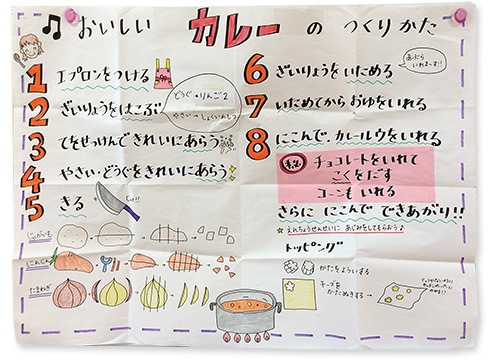 おいしい カレー の つくりかた
1 エプロンをつける
2 ざいりょうをはこぶ
どうぐ・りんご2
やさい→しょくいんしつ
3 てをせっけんできれいにあらう
4 やさい・どうぐをきれいにあらう
5 きる
じゃがいも
にんじん
たまねぎ
6 ざいりょうをいためる
あぶら
いれまーす!!
7 いためてからおゆをいれる
8 にこんで、カレールウをいれる
チョコレートをいれて
こくをだす
コーンもいれる
さらに にこんで できあがり!!
☆えんちょうせんせいに あじみをしてもらおう♪
トッピング
かたをよういする
チーズを
かたぬきする